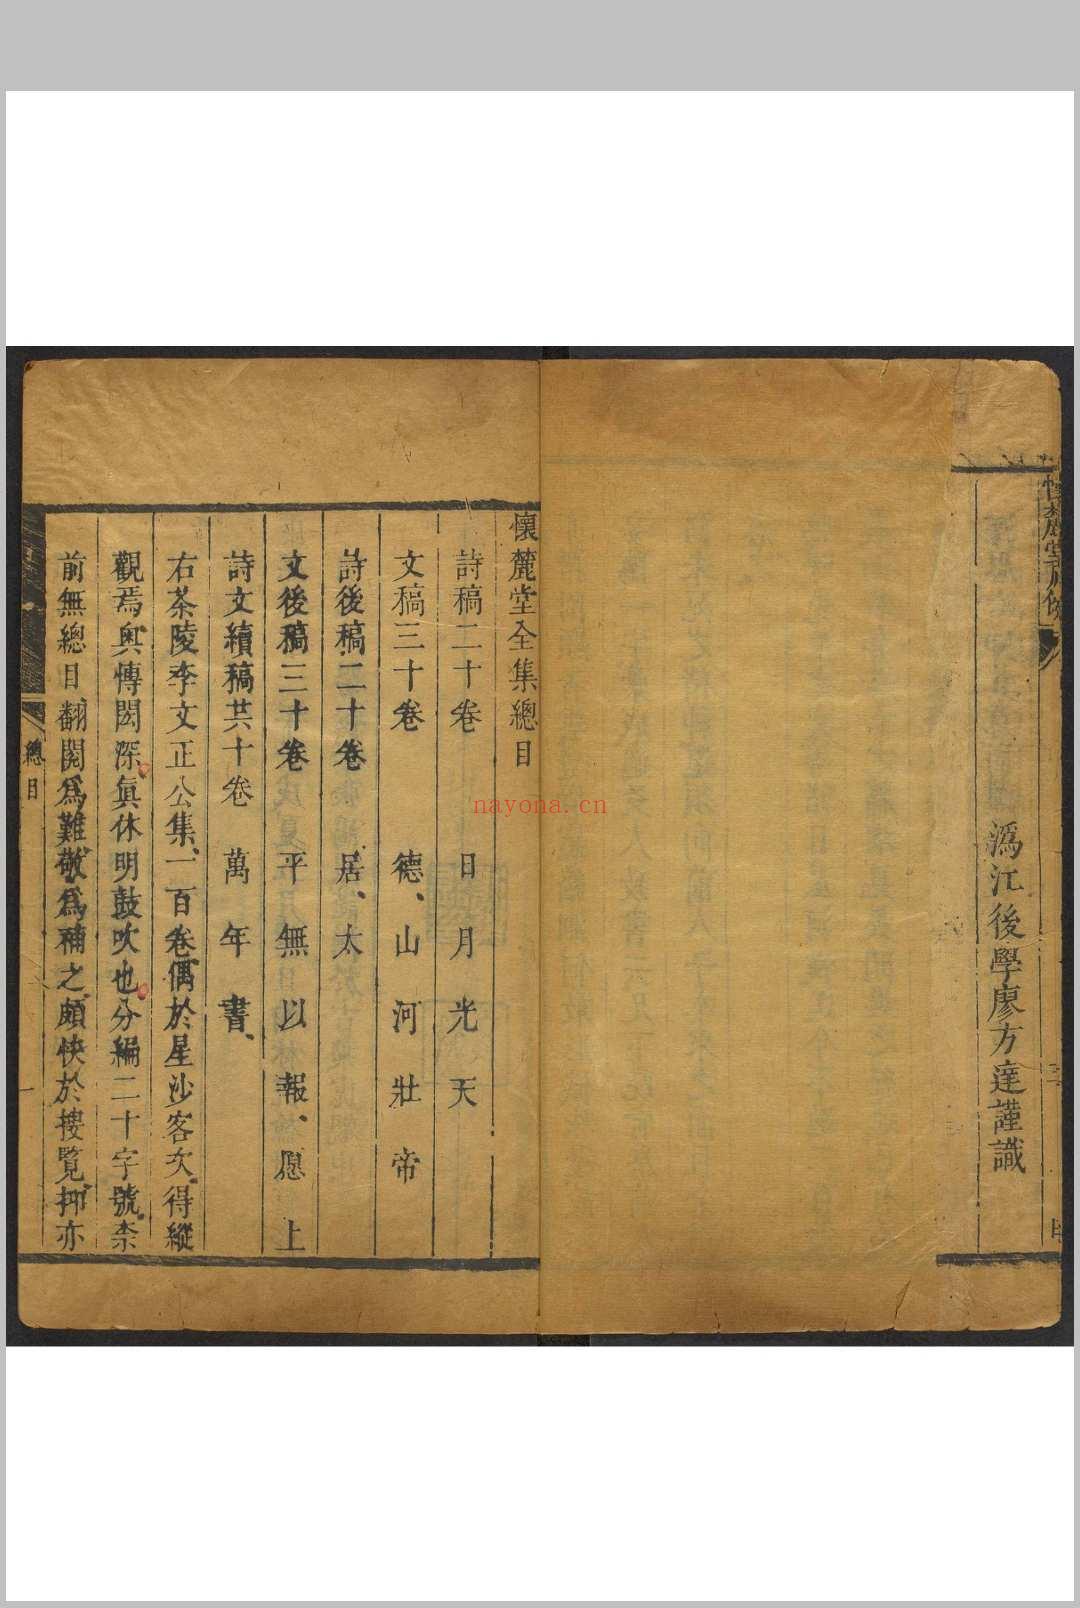 溈江後學廖方達謹識
懷麓堂全集總目
詩稿二十卷 日月光天
文稿三十卷 德山河壯帝
詩後稿二十卷 居太
文後稿三十卷 平無以報愿上
詩文續稿共十卷 萬年書
右茶陵李文正公集一百卷偶於星沙客次得縱
觀焉奧博閎深真休明鼓吹也分編二十字號柰
前無總目翻閱為難敬為補之頗快於搜覽抑亦
總目
一
nayona.cn